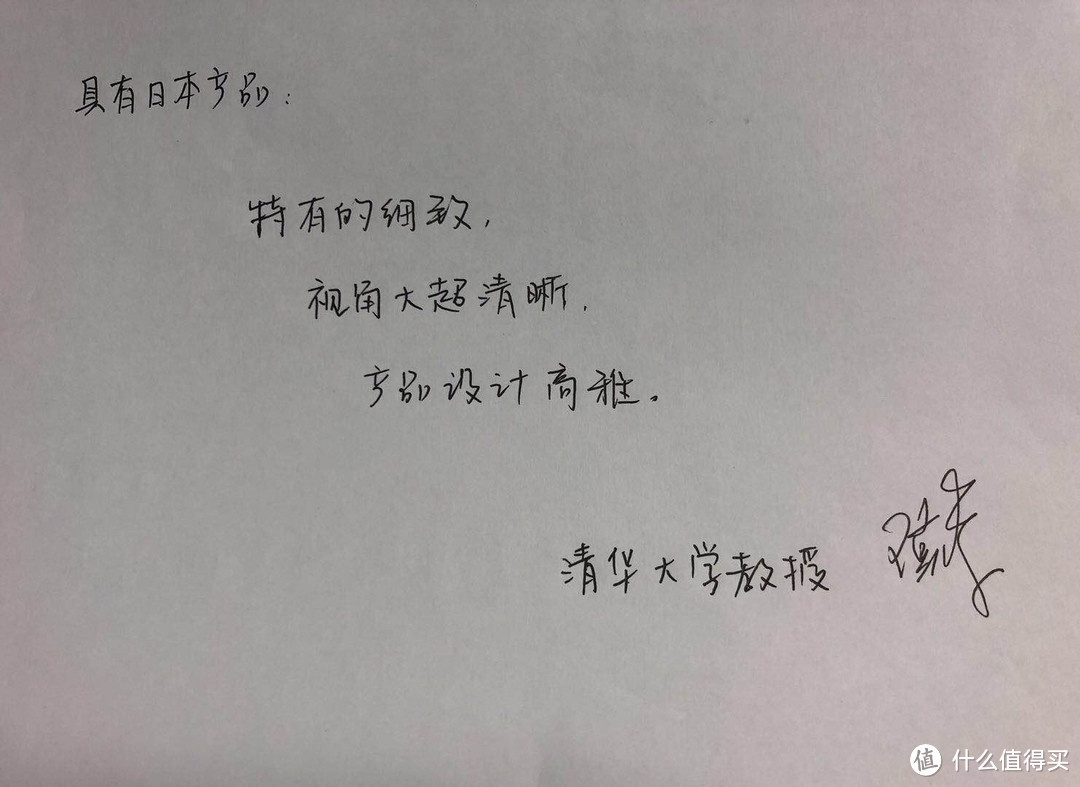 具有日本产品：
特有的细致，
视角大超清晰，
产品设计高雅。
清华大学教授
值 什么值得买